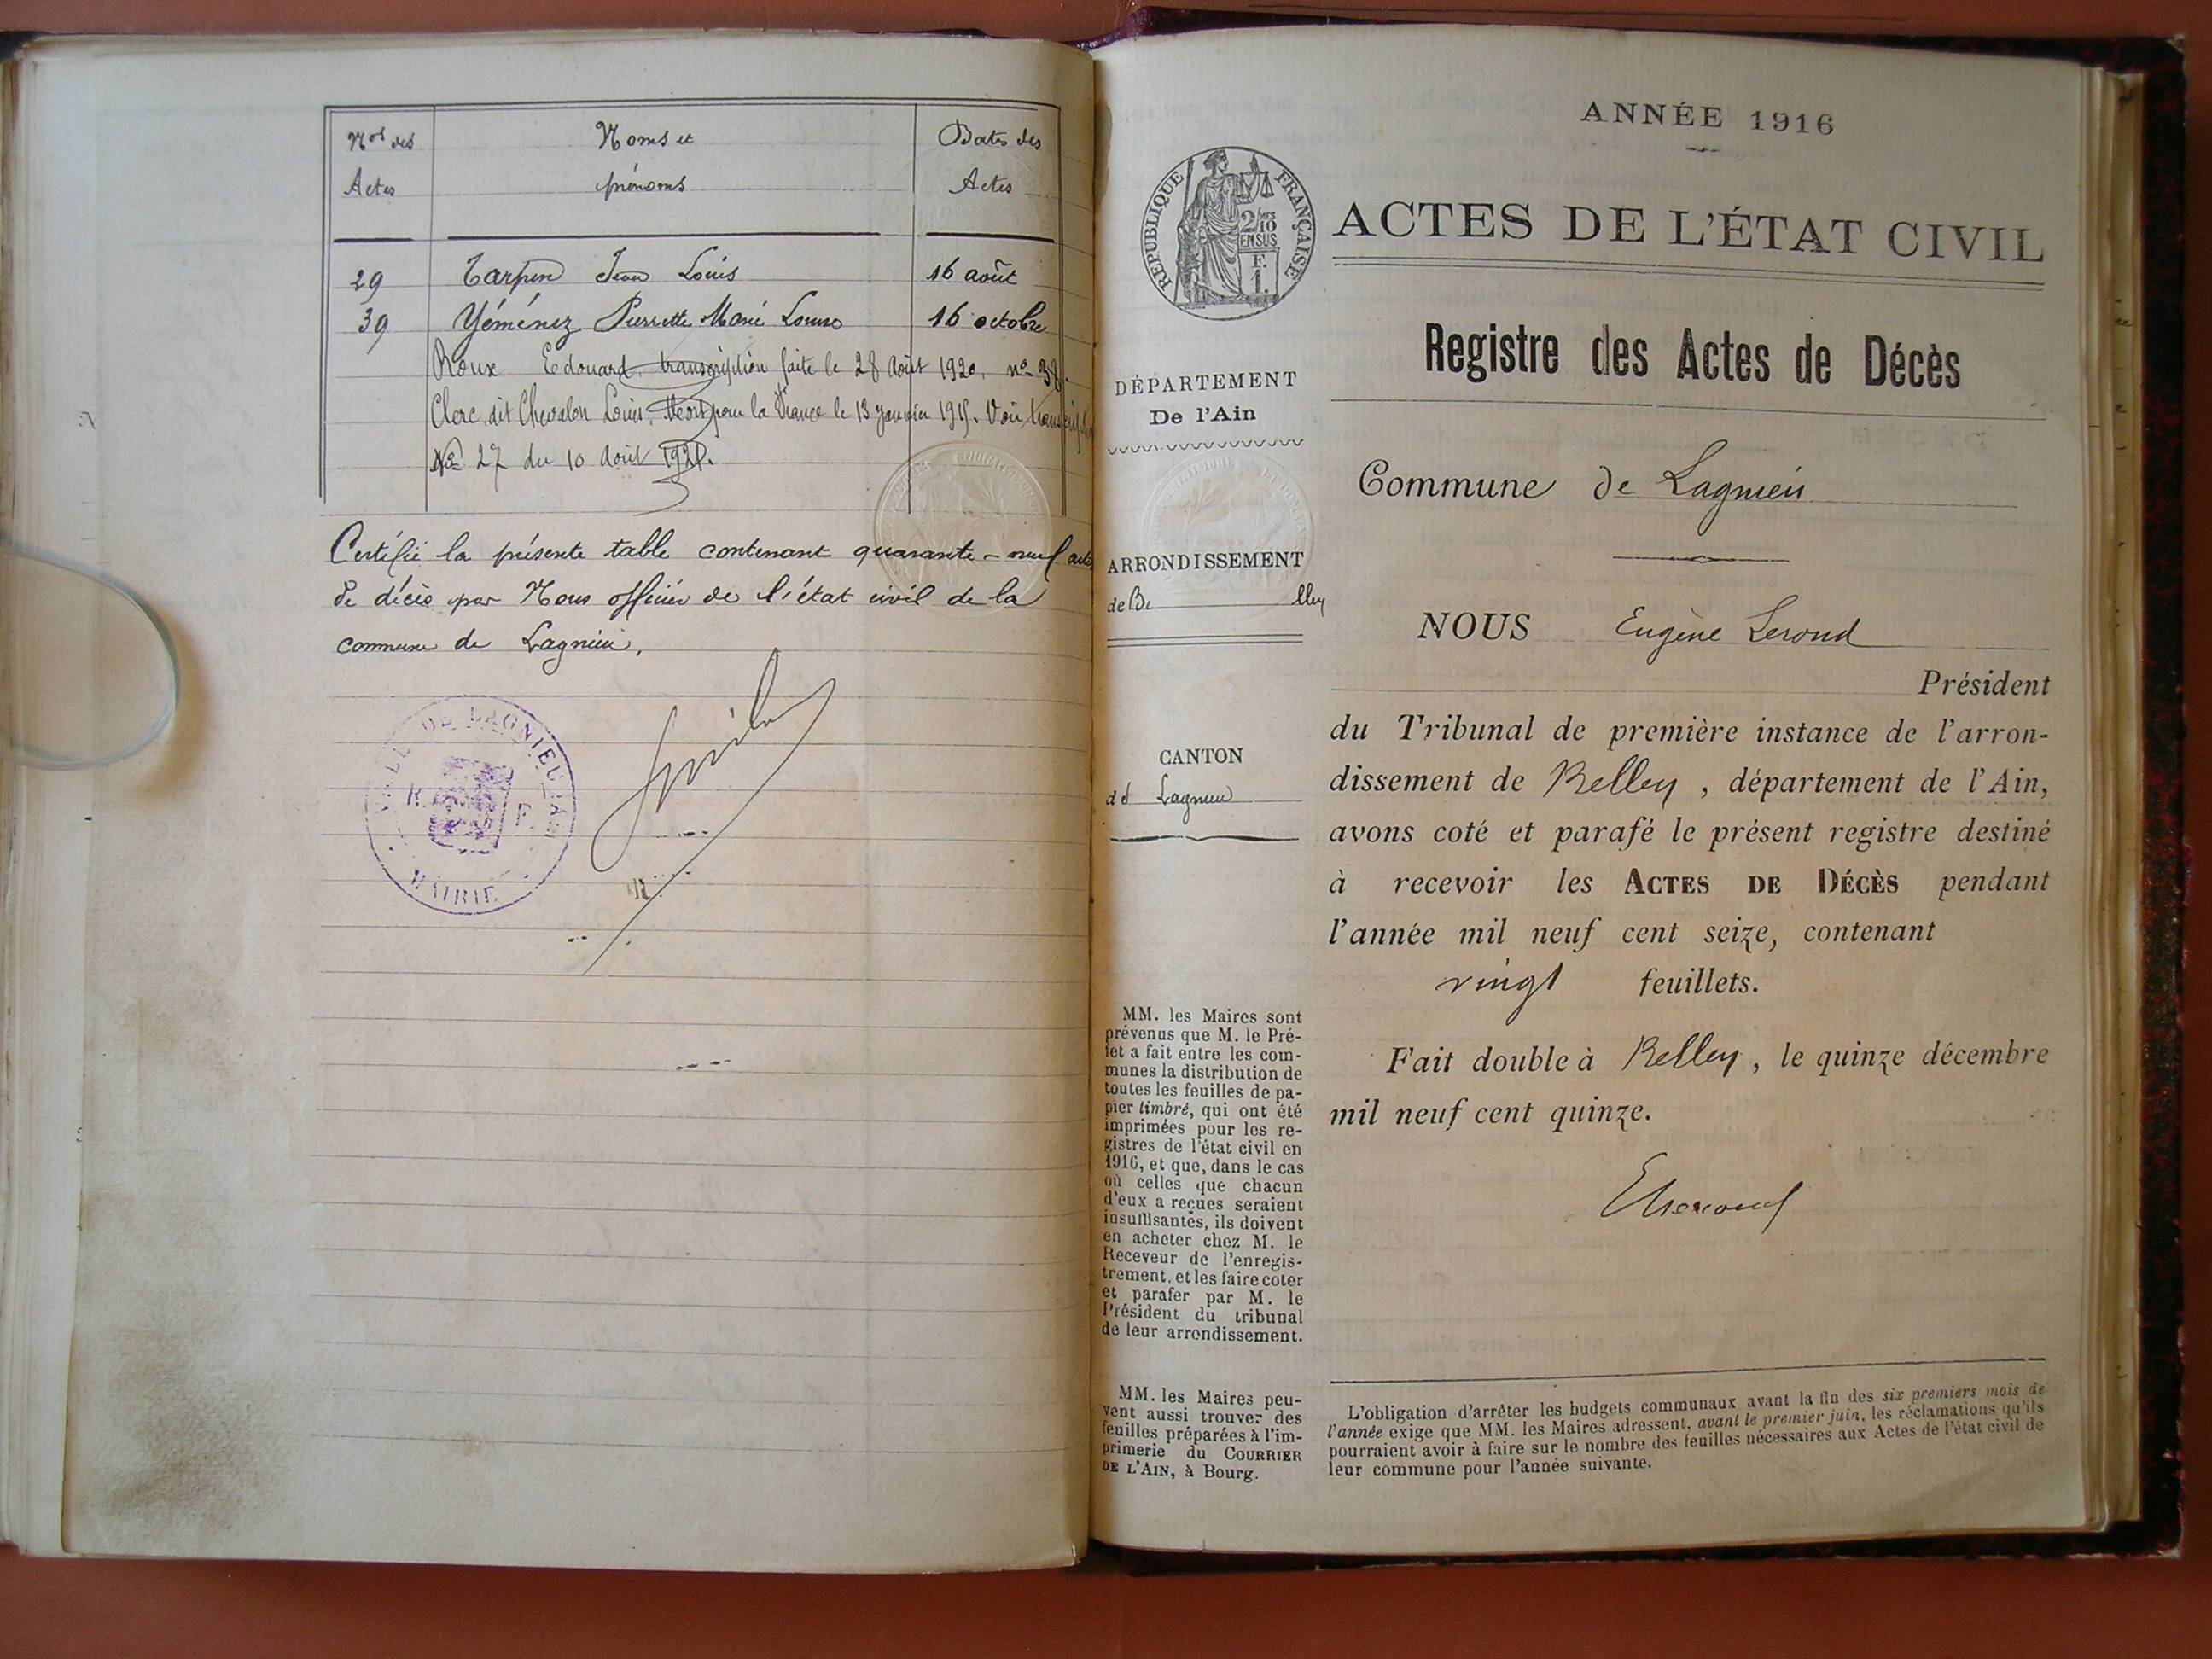 Nos des Noms et Dates des
Actes prénoms Actes
29 Tarpin Jean Louis 16 août
39 Yéméniz Pierrette Marie Louise 16 octobre
Roux Edouard, transcription faite le 28 Août 1920, no 38.
Clerc dit Chevalon Louis, Mort pour la France le 13 janvier 1915. Voir transcription
No 27 du 10 Août 1921.
Certifié la présente table contenant quarante-neuf actes
de décès par Nous officier de l'état civil de la
commune de Lagnieu.
VILLE DE LAGNIEU (AIN)
R. F.
MAIRIE
ANNÉE 1916
REPUBLIQUE FRANÇAISE
2/10
EN SUS
F.
1.
ACTES DE L'ÉTAT CIVIL
Registre des Actes de Décès
DÉPARTEMENT
De l'Ain
Commune de Lagnieu
ARRONDISSEMENT
de Belley
NOUS Eugène Lerond
Président
du Tribunal de première instance de l'arron-
dissement de Belley, département de l'Ain,
avons coté et parafé le présent registre destiné
à recevoir les ACTES DE DÉCÈS pendant
l'année mil neuf cent seize, contenant
vingt feuillets.
Fait double à Belley, le quinze décembre
mil neuf cent quinze.
ELerond
CANTON
de Lagnieu
MM. les Maires sont
prévenus que M. le Pré-
fet a fait entre les com-
munes la distribution de
toutes les feuilles de pa-
pier timbré, qui ont été
imprimées pour les re-
gistres de l'état civil en
1916, et que, dans le cas
où celles que chacun
d'eux a reçues seraient
insuffisantes, ils doivent
en acheter chez M. le
Receveur de l'enregis-
trement, et les faire coter
et parafer par M. le
Président du tribunal
de leur arrondissement.
MM. les Maires peu-
vent aussi trouver des
feuilles préparées à l'im-
primerie du COURRIER
DE L'AIN, à Bourg.
L'obligation d'arrêter les budgets communaux avant la fin des six premiers mois de
l'année exige que MM. les Maires adressent, avant le premier juin, les réclamations qu'ils
pourraient avoir à faire sur le nombre des feuilles nécessaires aux Actes de l'état civil de
leur commune pour l'année suivante.